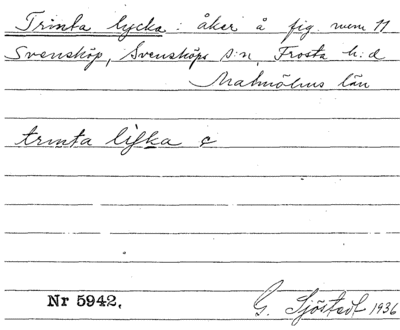 Trinta lycka: åker å fig. num 11
Svensköp, Svensköps s:n, Frosta h:d
Malmöhus län
trinta lyka c
Nr 5942.
G. Sjöstedt 1936